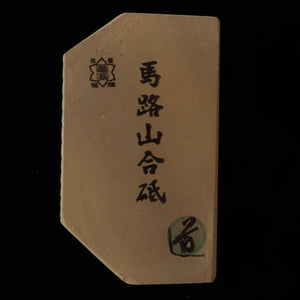 馬路山合砥